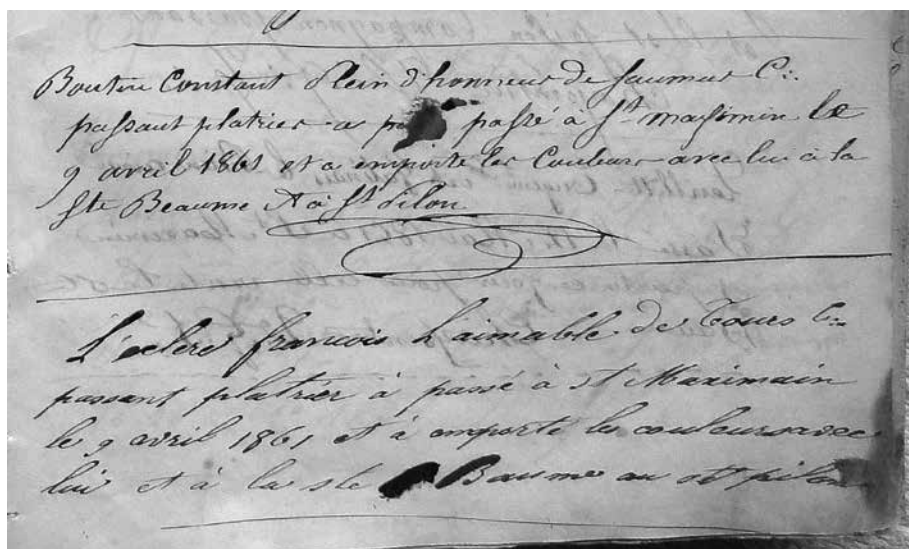 Boutin Constant Plein d'honneur de Saumur C∴
passant platrier a passé à St. maximin le
9 avril 1861 et a emporté les Couleurs avec lui à la
Ste Beaume & à St. pilon
L'eclere francois L'aimable de Tours C∴
passant platrier à passé à st Maximain
le 9 avril 1861 et à emporté les couleurs avec
lui et à la ste Baume au st pilon